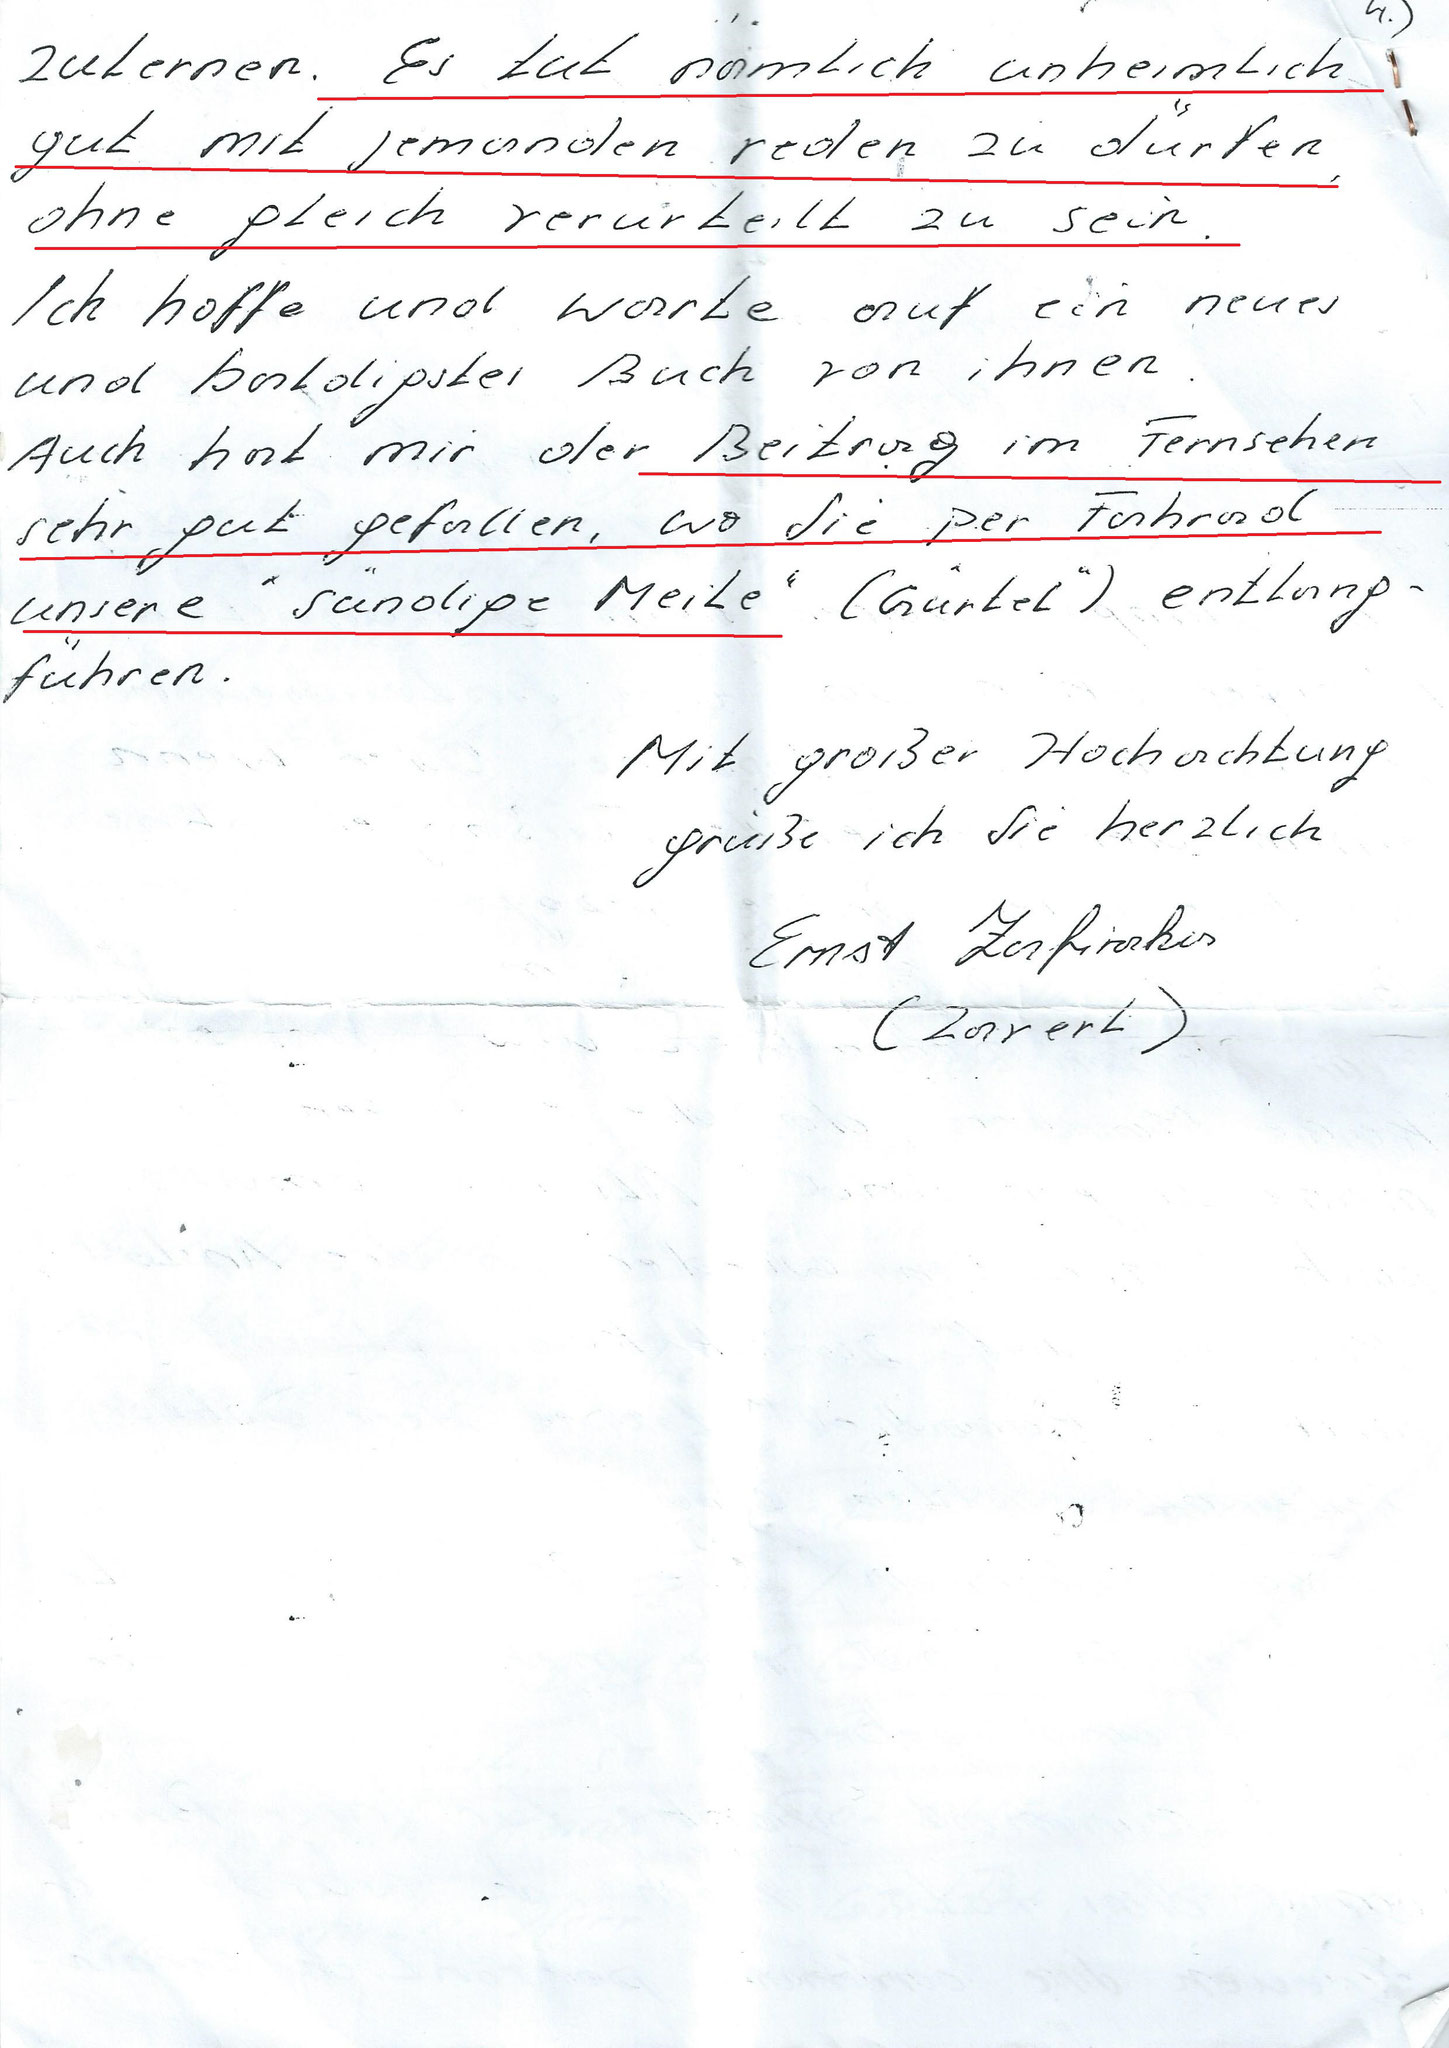 4.)
zulernen. Es tut nämlich unheimlich
gut mit jemanden reden zu dürfen,
ohne gleich verurteilt zu sein.
Ich hoffe und warte auf ein neues
und baldigstes Buch von ihnen.
Auch hat mir der Beitrag im Fernsehen
sehr gut gefallen, wo Sie per Fahrad
unsere "sündige Meile" (Gürtel") entlang-
führen.
Mit großer Hochachtung
grüße ich Sie herzlich
Ernst
(Zavert)